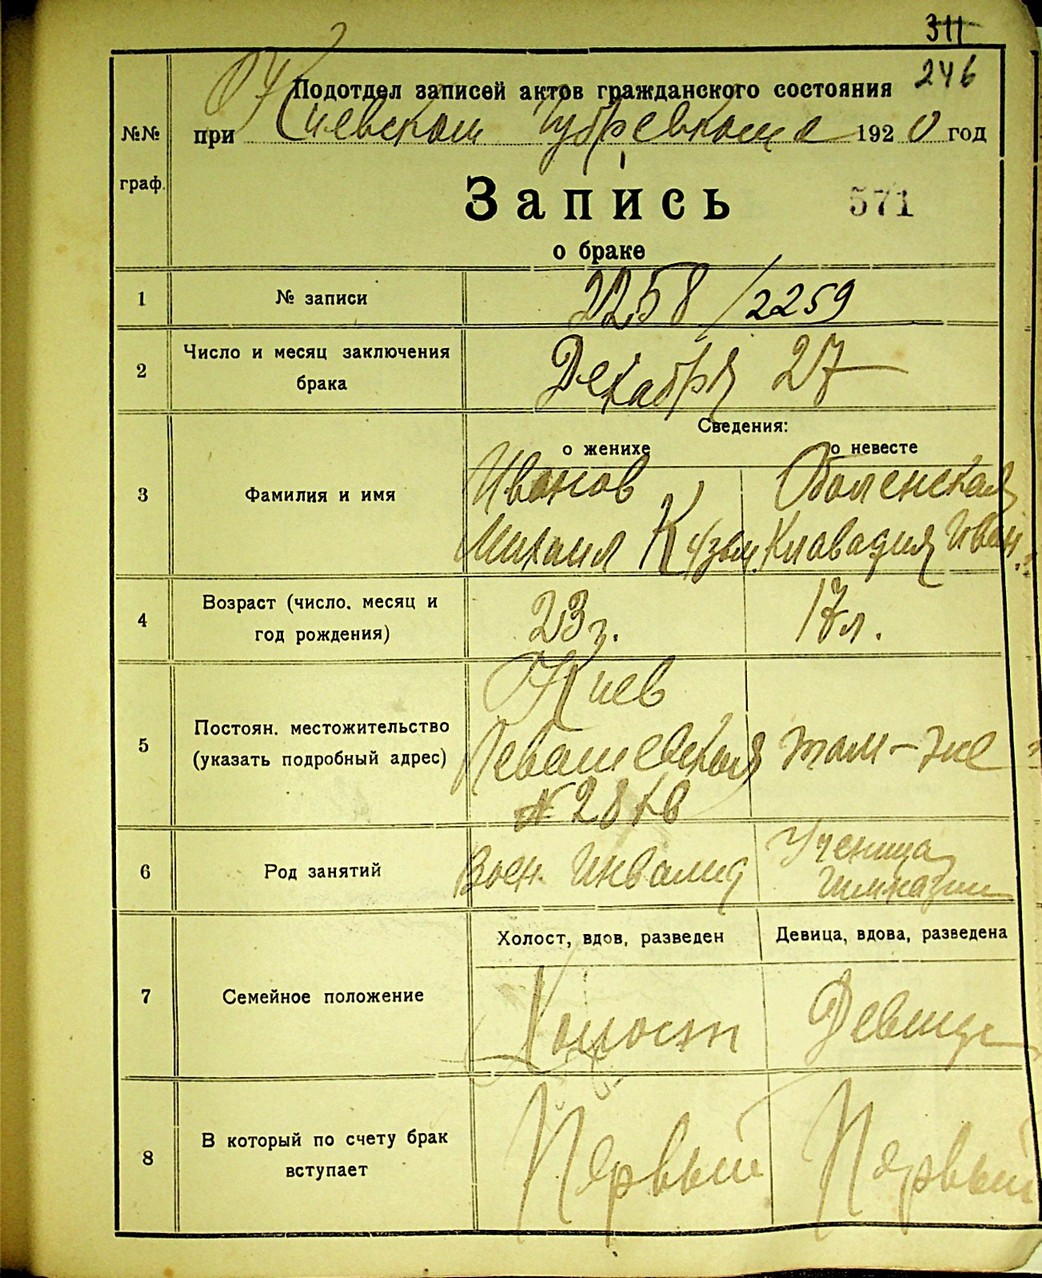 311
246
Подотдел записей актов гражданского состояния
№№ граф.
при Киевском Губревкоме 1920 год
Запись
571
о браке
1 № записи 2258/2259
2 Число и месяц заключения брака Декабря 27
Сведения:
о женихе о невесте
3 Фамилия и имя
Иванов Оболенская
Михаил Кузьм. Клавадия Иван.
4 Возраст (число, месяц и год рождения) 23 г. 17 л.
5 Постоян. местожительство (указать подробный адрес)
Киев
Левашевская там-же
№ 28 кв
6 Род занятий
Воен. Инвалид Ученица
гимназии
Холост, вдов, разведен Девица, вдова, разведена
7 Семейное положение Холост Девица
8 В который по счету брак вступает Первый Первый